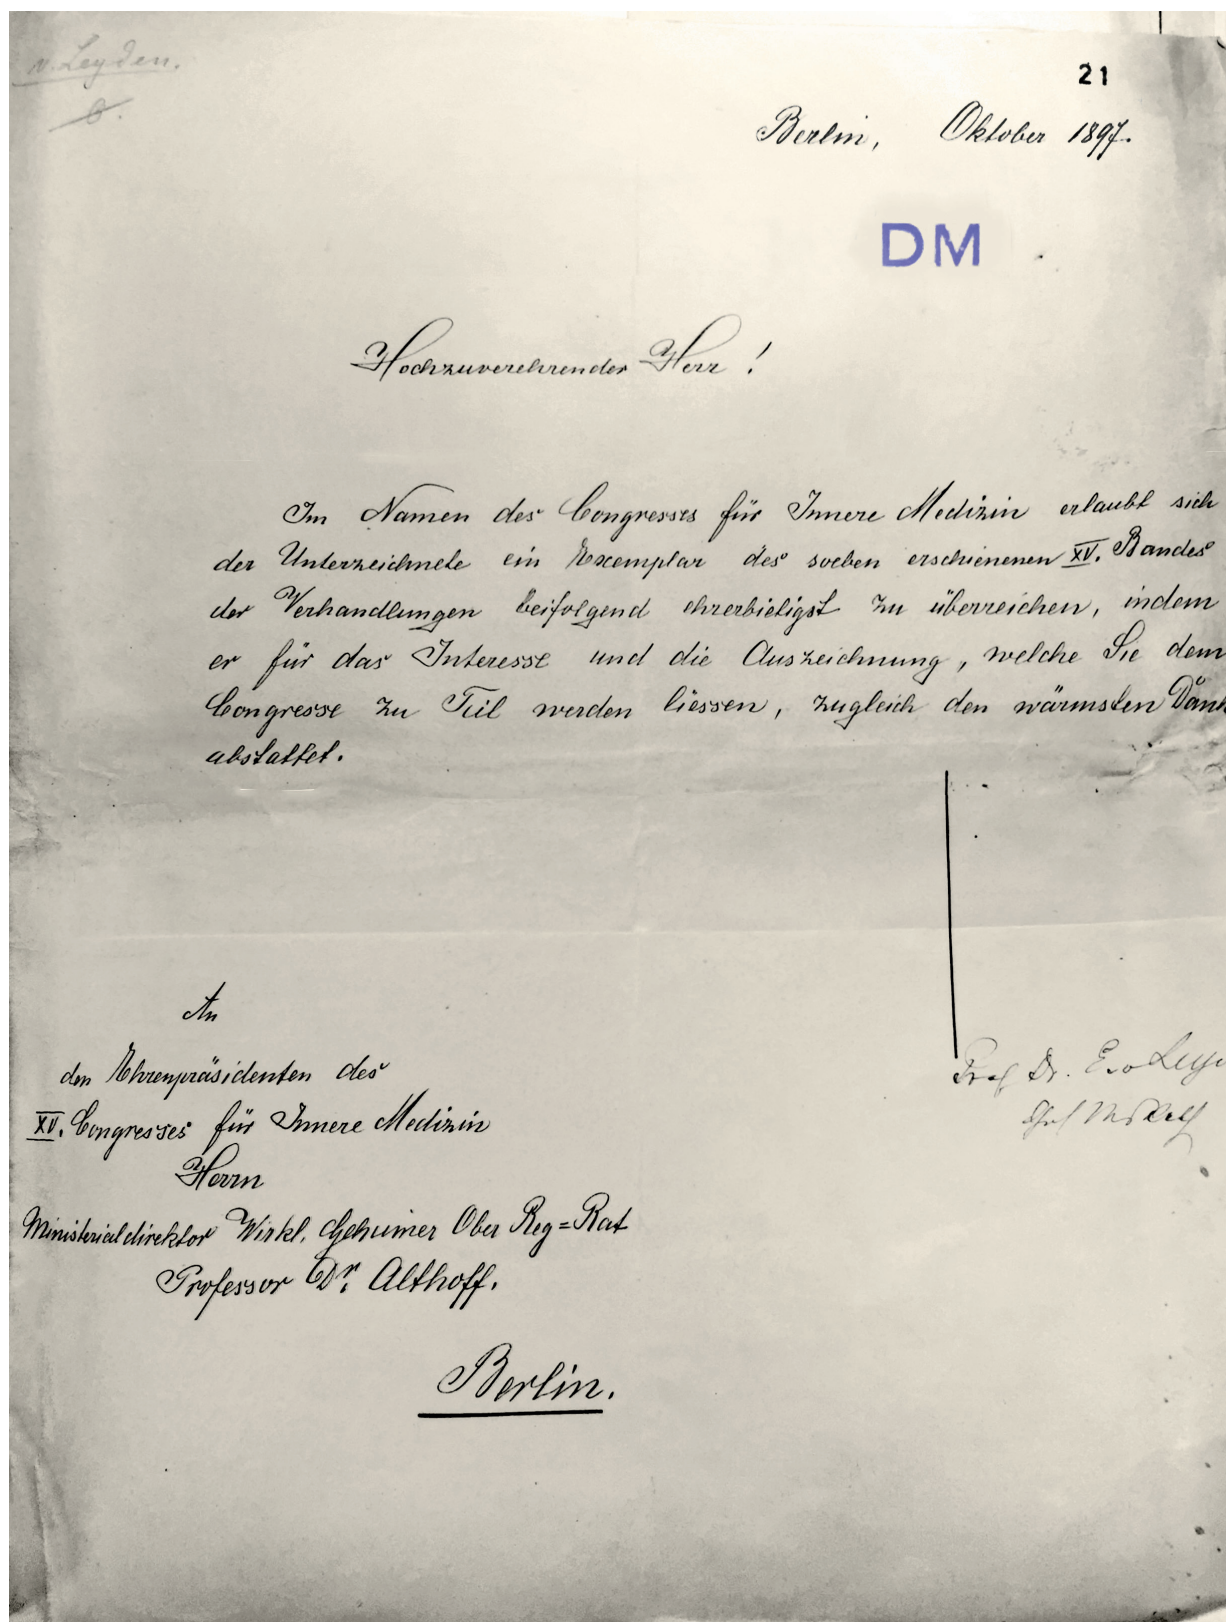 v. Leyden.
21
Berlin, Oktober 1897.
DM
Hochzuverehrender Herr!
Im Namen des Congresses für Innere Medizin erlaubt sich
der Unterzeichnete ein Exemplar des soeben erschienenen XV. Bandes
der Verhandlungen beifolgend ehrerbietigst zu überreichen, indem
er für das Interesse und die Auszeichnung, welche Sie dem
Congresse zu Teil werden liessen, zugleich den wärmsten Dank
abstattet.
Prof Dr. E. v Leyd
An
den Ehrenpräsidenten des
XV. Congresses für Innere Medizin
Herrn
Ministerialdirektor Wirkl. Geheimer Ober Reg=Rat
Professor Dr. Althoff.
Berlin.